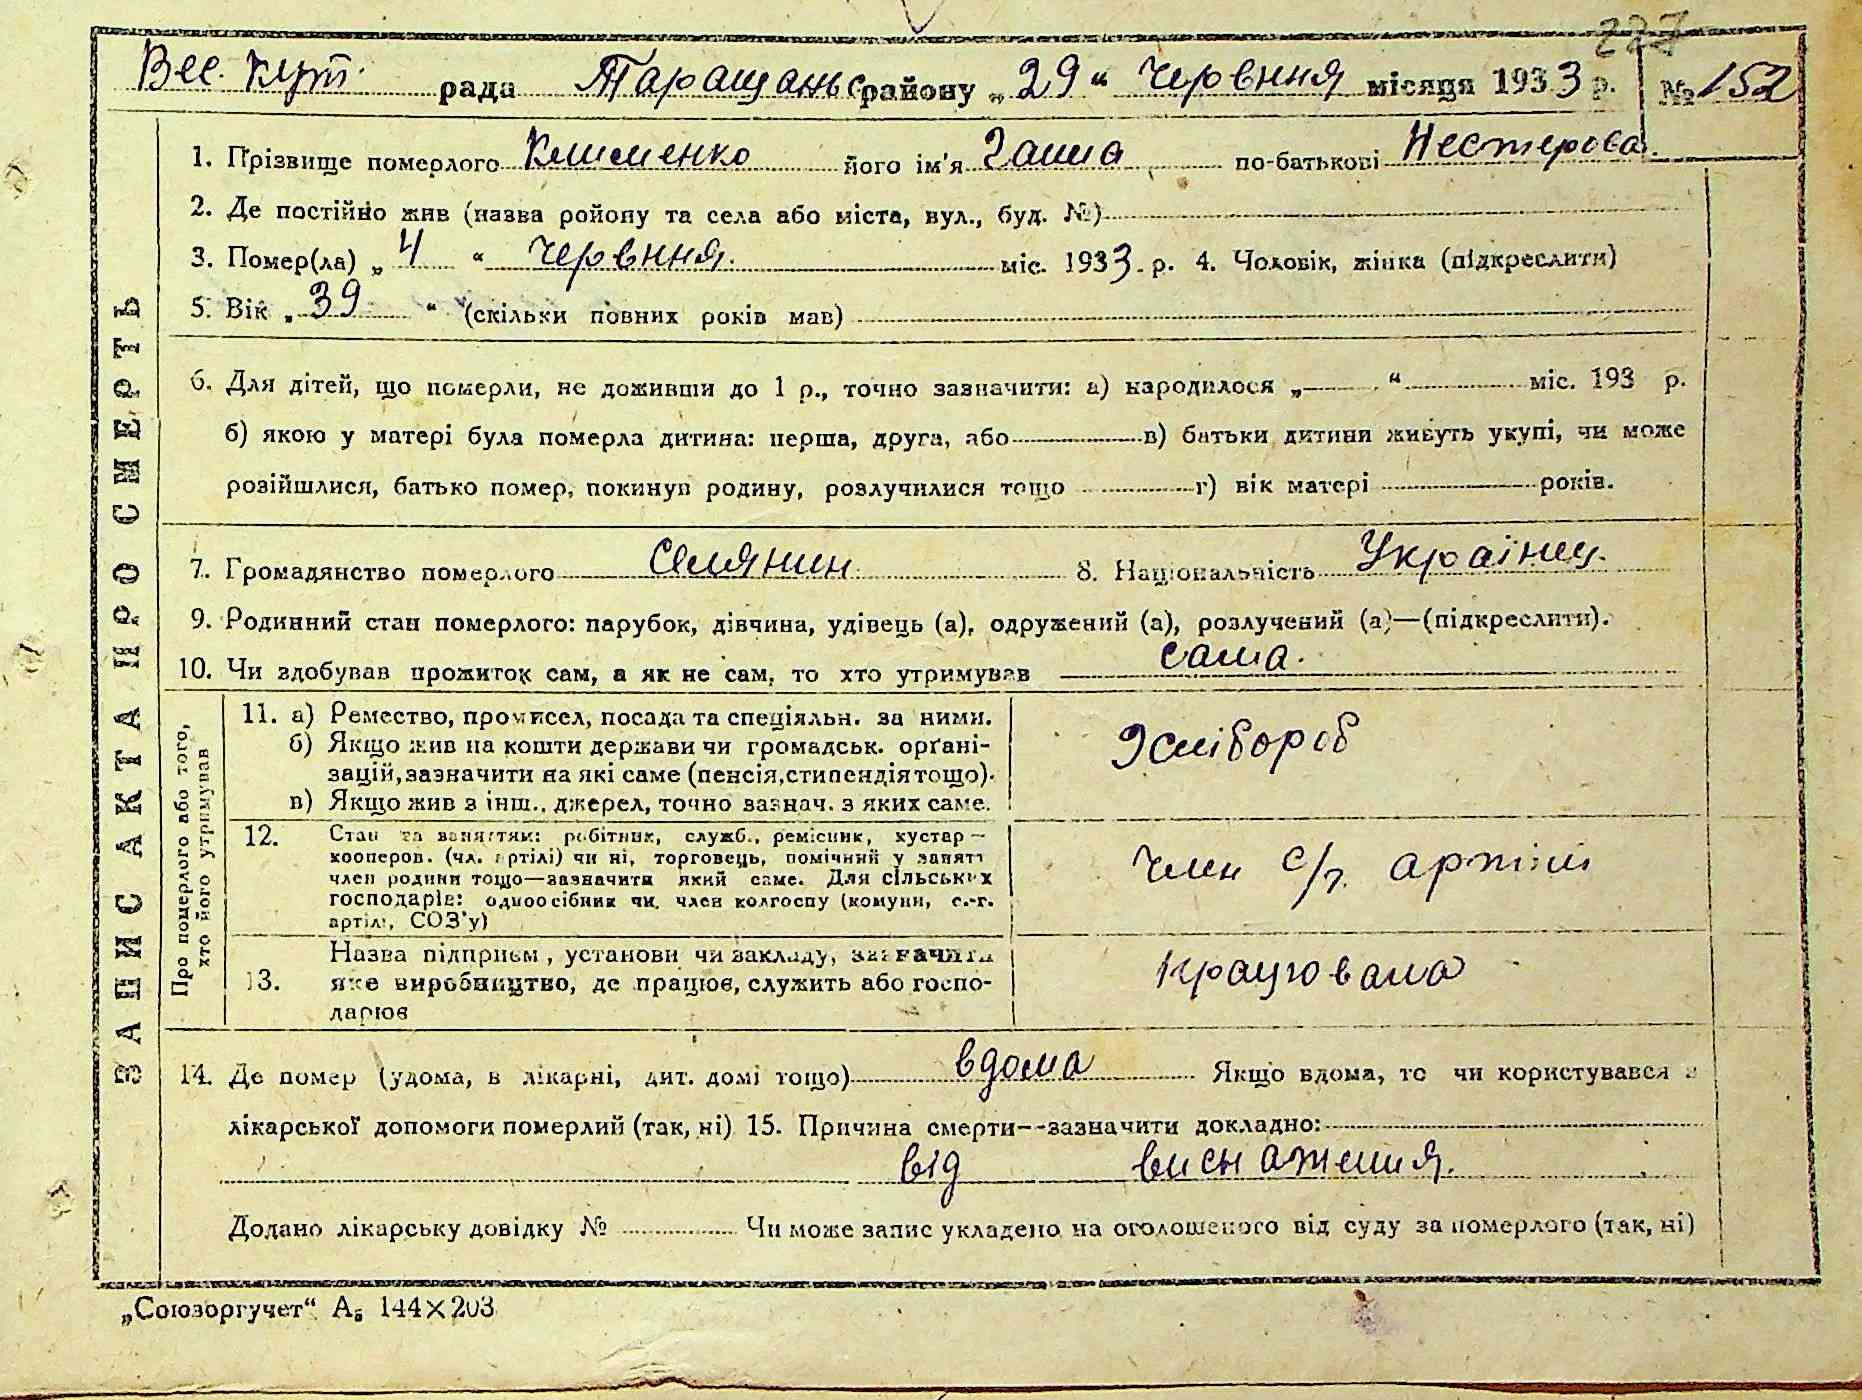 227
Вес. Кут. рада Таращаньс району „29“ Червння місяця 1933 р. № 152
ЗАПИС АКТА ПРО СМЕРТЬ
1. Прізвище померлого Клименко його ім'я Ганна по-батькові Нестерова.
2. Де постійно жив (назва ройону та села або міста, вул., буд. №)
3. Помер(ла) „4“ Червння. міс. 1933. р. 4. Чоловік, жінка (підкреслити)
5. Вік „39“ (скільки повних років мав)
6. Для дітей, що померли, не доживши до 1 р., точно зазначити: а) народилося „ “ міс. 193 р.
б) якою у матері була померла дитина: перша, друга, або в) батьки дитини живуть укупі, чи може
розійшлися, батько помер, покинув родину, розлучилися тощо г) вік матері років.
7. Громадянство померлого Селянин 8. Національність Українец.
9. Родинний стан померлого: парубок, дівчина, удівець (а), одружений (а), розлучений (а)—(підкреслити).
10. Чи здобував прожиток сам, а як не сам, то хто утримував сама.
Про померлого або того,
хто його утримував
11. а) Ремество, промисел, посада та спеціяльн. за ними.
б) Якщо жив на кошти держави чи громадськ. орґані-
зацій, зазначити на які саме (пенсія, стипендія тощо).
в) Якщо жив з інш., джерел, точно зазнач. з яких саме.
Хлібороб
12. Стан та заняттям: робітник, служб., ремісник, кустар—
кооперов. (чл. артілі) чи ні, торговець, помічний у занятт
член родини тощо—зазначити який саме. Для сільських
господарів: одноосібник чи член колгоспу (комуни, с.-г.
артілі, СОЗ'у)
Член с/г. артілі
13. Назва підприєм, установи чи закладу, зазначити
яке виробництво, де працює, служить або госпо-
дарює
працювала
14. Де помер (удома, в лікарні, дит. домі тощо) вдома Якщо вдома, то чи користувався з
лікарської допомоги померлий (так, ні) 15. Причина смерти--зазначити докладно:
від виснаження.
Додано лікарську довідку № Чи може запис укладено на оголошеного від суду за померлого (так, ні)
„Союзоргучет“ А₅ 144×203